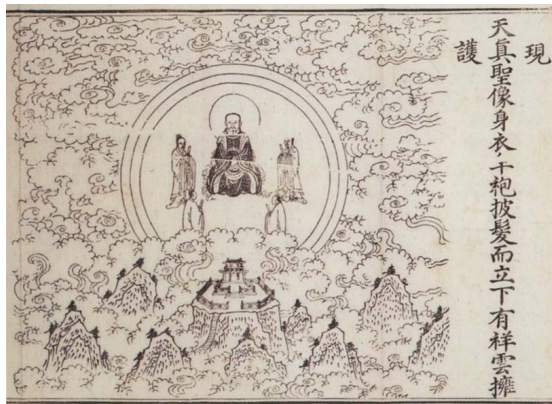 現
天真聖像身衣袍披髮而立下有祥雲擁
護